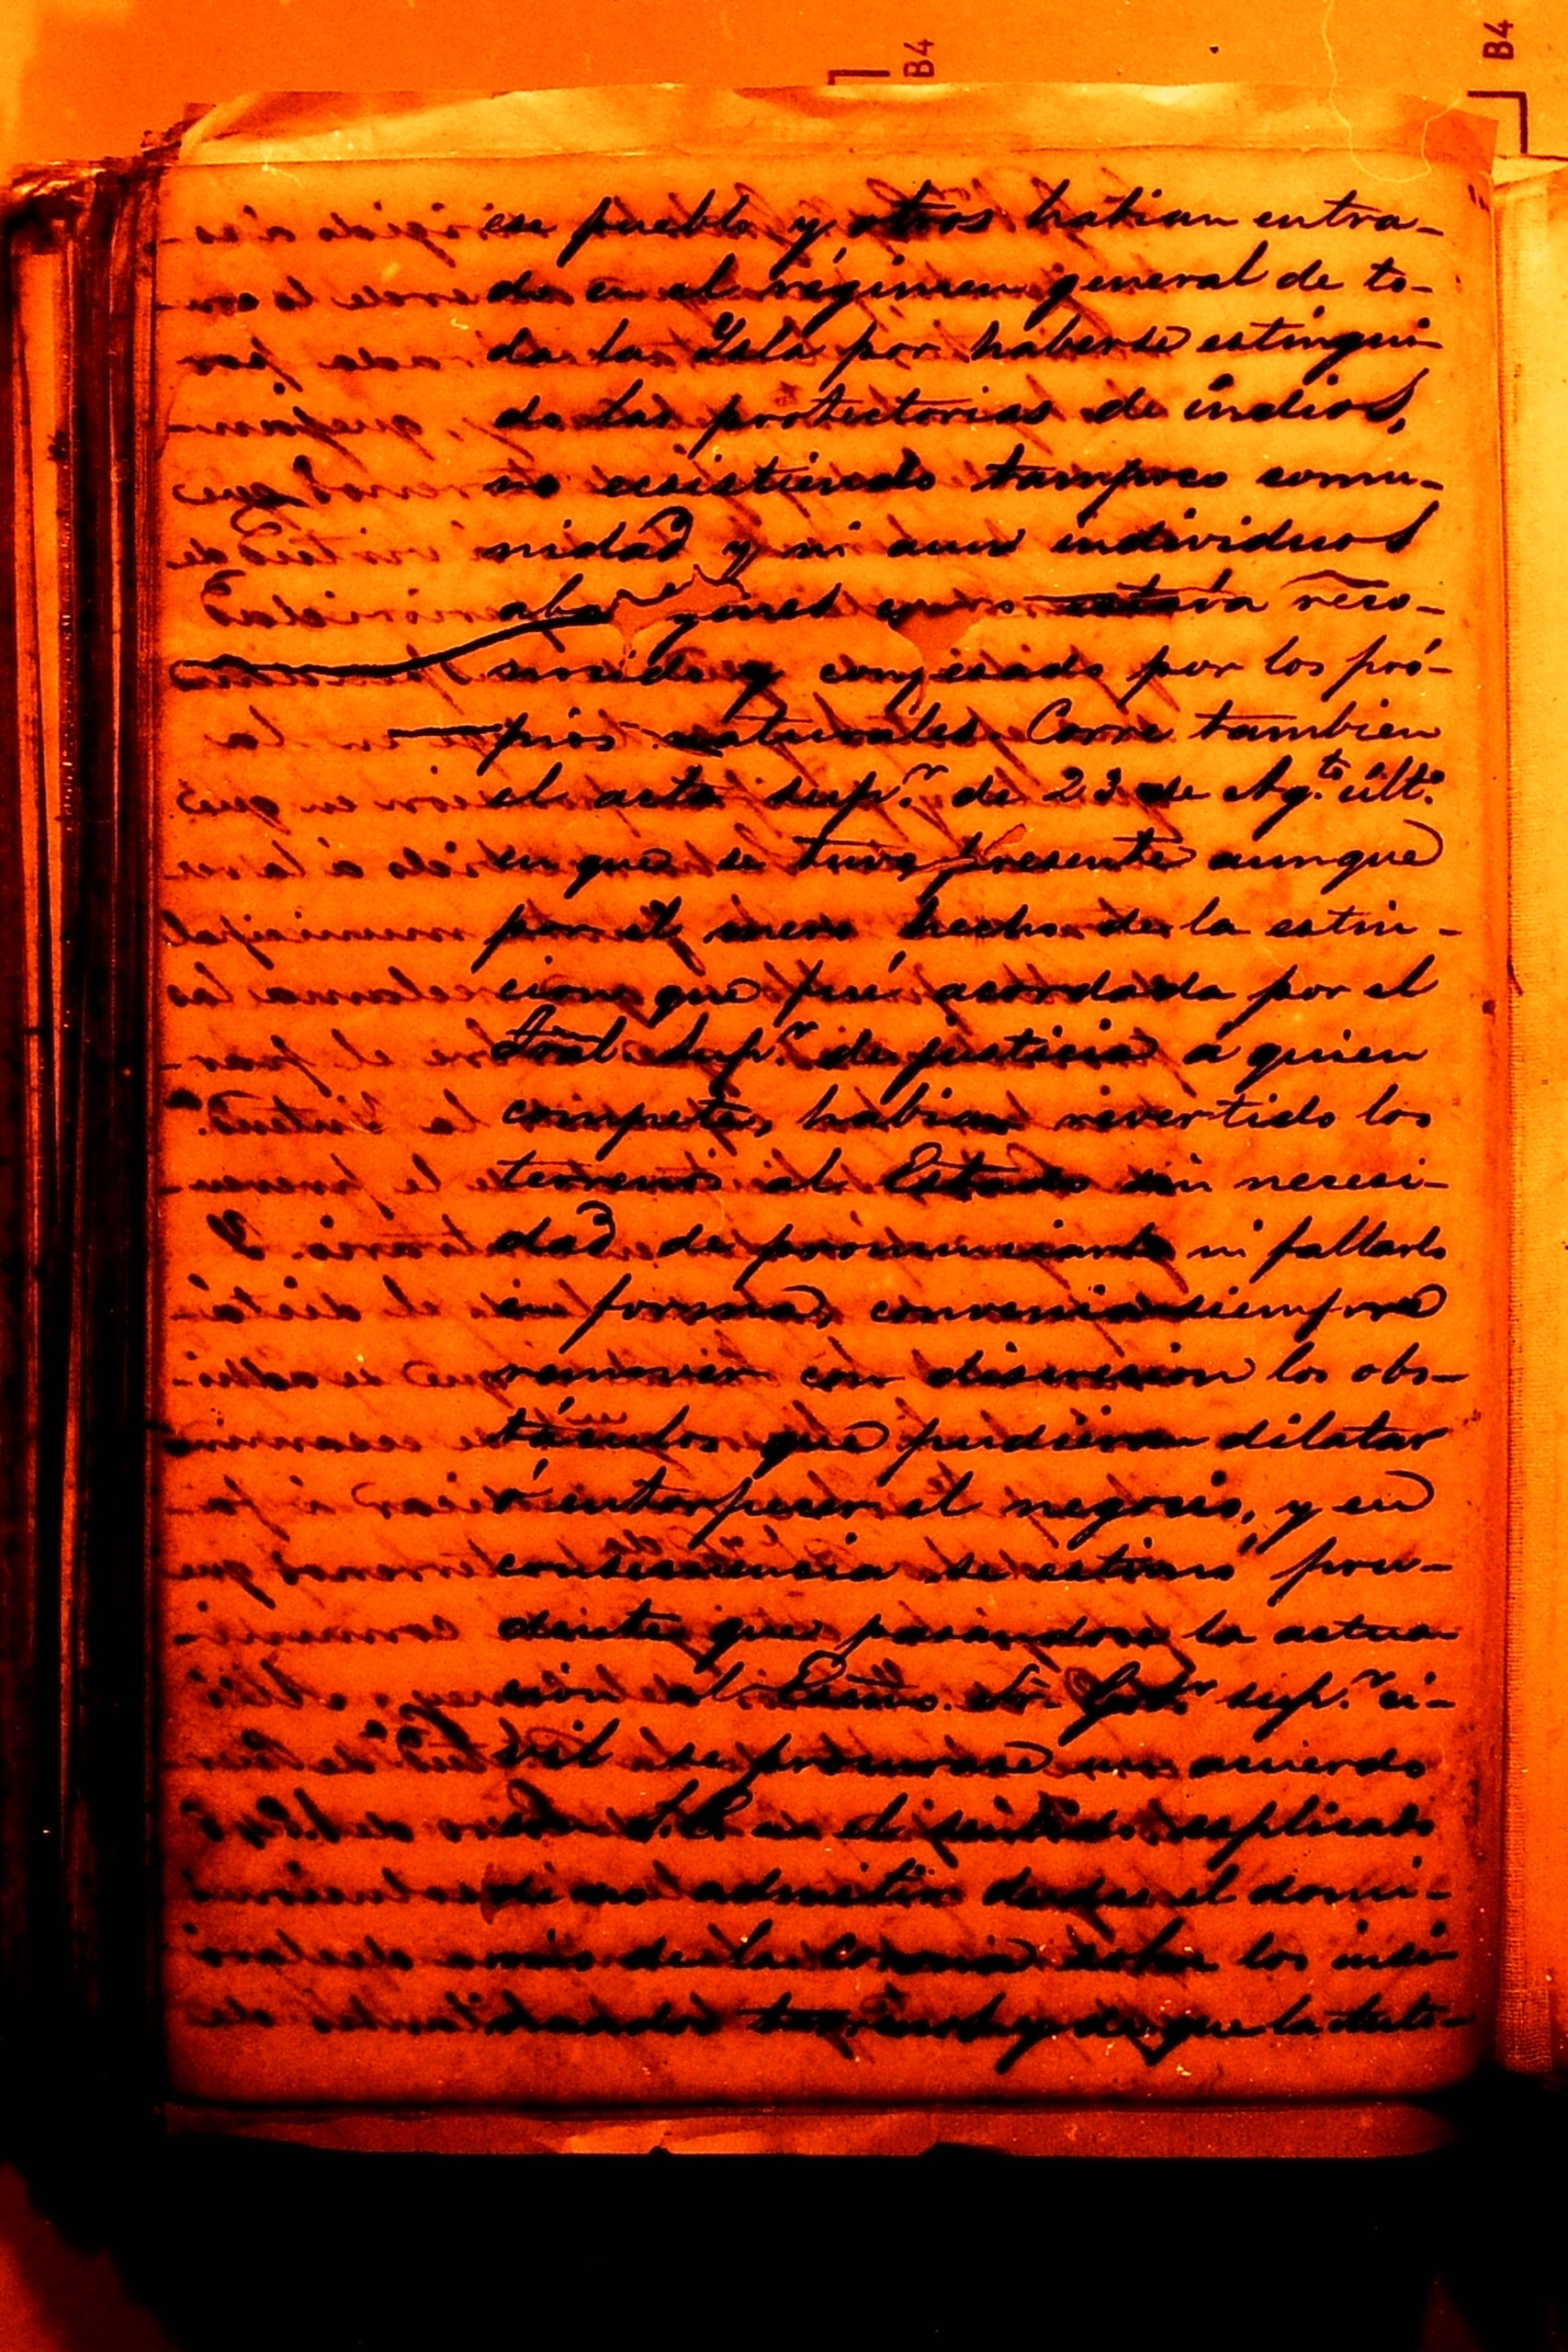 B4
B4
ese pueblo y otros habian entra-
do en el régimen general de to-
da la Ysla por haberse estingui-
do las protectorias de indios,
no ecsistiendo tampoco comu-
nidad y ni aun individuos
aborigenes reco-
nocido y confesado por los pró-
pios naturales. Corre tambien
el acta sup.r de 23 de Ag.to últ.o
en que se tuvo presente aunque
por el mero hecho de la estin-
cion que fué acordada por el
Tral Sup.r de justicia á quien
compete, habian revertido los
terrenos al Estado sin necesi-
dad de pronunciarlo ni fallarlo
en forma, convenia siempre
remover con discrecion los obs-
táculos que pudieran dilatar
ó entorpecer el negocio, y en
consecuencia se estimó pru-
dente que pasandose la actua
cion al Escmo. Sr. Gob.r sup.r ci-
vil se procurase un acuerdo
con S.E. en el sentido esplicado
de no admitir dudas el domi-
nio de la Corona sobre los indi-
cados terrenos y de que la auto-